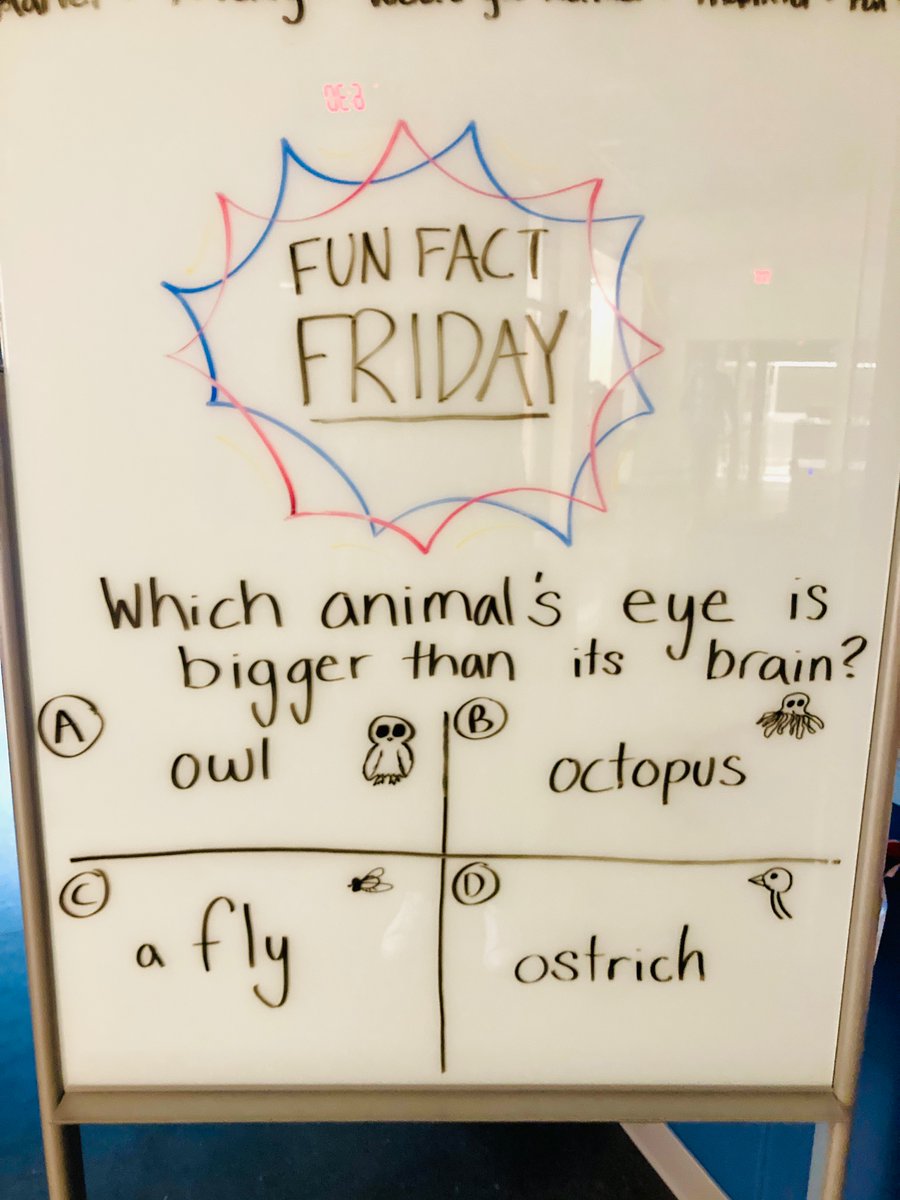 FUN FACT
FRIDAY
Which animal's eye is
bigger than its brain?
A
owl
B
octopus
C
a fly
D
ostrich